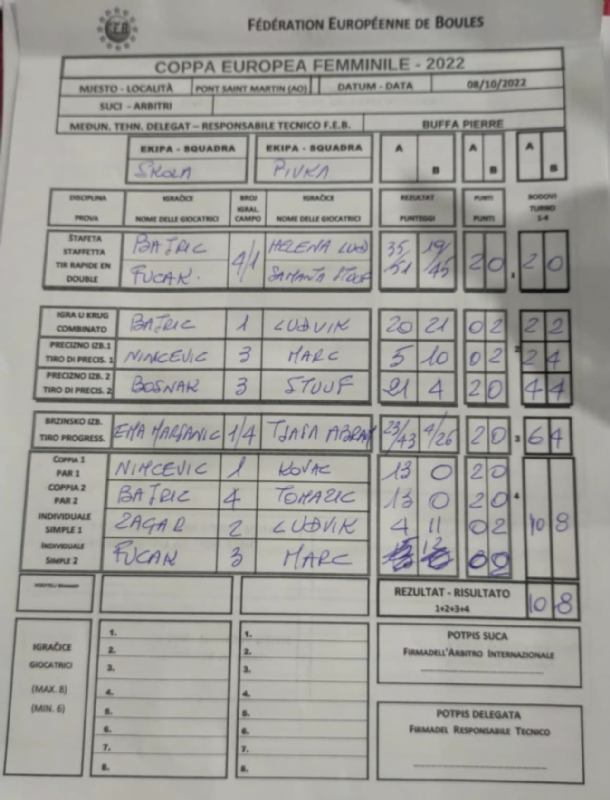 FÉDÉRATION EUROPÉENNE DE BOULES
COPPA EUROPEA FEMMINILE - 2022
MJESTO - LOCALITÀ PONT SAINT MARTIN (AO) DATUM - DATA 08/10/2022
SUCI - ARBITRI
MEĐUN. TEHN. DELEGAT – RESPONSABILE TECNICO F.E.B. BUFFA PIERRE
EKIPA - SQUADRA EKIPA - SQUADRA A B A B A B
ŠKOLA PIVKA
DISCIPLINA IGRAČICE BROJ IGRAČICE REZULTAT PUNTI BODOVI
PROVA NOME DELLE GIOCATRICI IGRAL. CAMPO NOME DELLE GIOCATRICI PUNTEGGI PUNTI TURNO 1-4
ŠTAFETA BAJRIC HELENA 35 19
STAFFETTA 4/1 2 0 1 2 0
TIR RAPIDE EN FUCAK. SAMANTA 51 45
DOUBLE
IGRA U KRUG BAJRIC 1 LUDVIK 20 21 0 2 2 2
COMBINATO
PRECIZNO IZB.1 NINCEVIC 3 MARC 5 10 0 2 2 2 4
TIRO DI PRECIS. 1
PRECIZNO IZB. 2 BOSNAK 3 STUUF 21 4 2 0 4 4
TIRO DI PRECIS. 2
BRZINSKO IZB. EMA MARJANIC 1/4 23/43 4/26 2 0 3 6 4
TIRO PROGRESS.
COPPIA 1 NINCEVIC 1 KOVAC 13 0 2 0
PAR 1
COPPIA 2 BAJRIC 4 TOMAZIC 13 0 2 0 4
PAR 2
INDIVIDUALE ZAGAR 2 LUDVIK 4 11 0 2 10 8
SIMPLE 1
INDIVIDUALE FUCAK 3 MARC
SIMPLE 2
REZULTAT - RISULTATO 10 8
1+2+3+4
IGRAČICE
GIOCATRICI
(MAX. 8)
(MIN. 6)
1. 1.
2. 2.
3. 3.
4. 4.
5. 5.
6. 6.
7. 7.
8. 8.
POTPIS SUCA
FIRMADELL'ARBITRO INTERNAZIONALE
POTPIS DELEGATA
FIRMADEL RESPONSABILE TECNICO